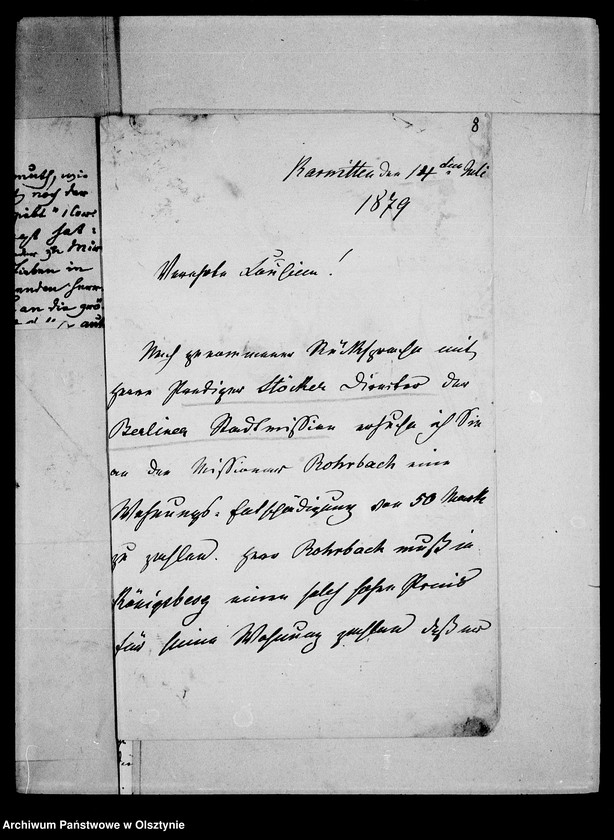 8
Karwitten den 14 ten Juli
1879
Verehrte !
Nach genommener Rücksprache mit
Herrn Prediger Stöcker Director der
Berliner Stadtmission ersuche ich Sie
an den Missionar Rohrbach eine
Wohnungs-Entschädigung von 50 Mark
zu zahlen. Herr Rohrbach muß in
Königsberg einen solch hohen Preis
für seine Wohnung zahlen daß er
muth, wie
noch der
hat
zu mir
lieben in
enden Herr
an die grö
Archiwum Państwowe w Olsztynie